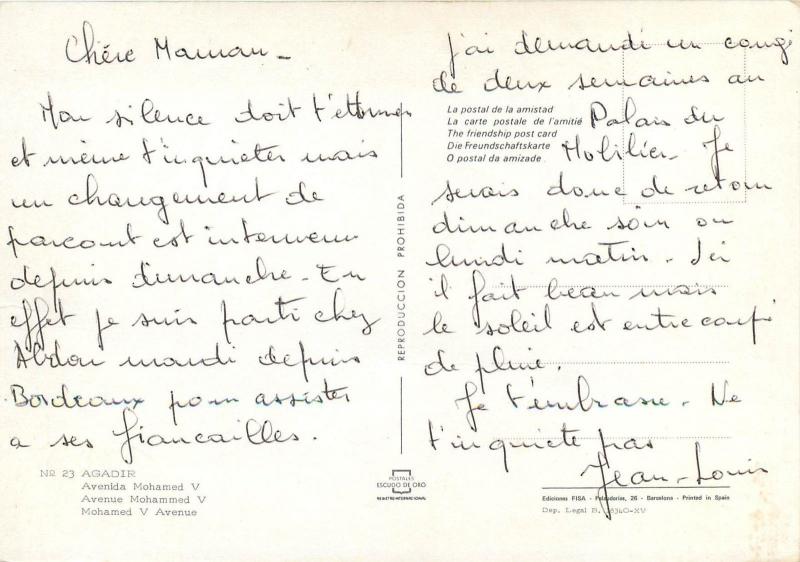 Chère Maman -
Mon silence doit t'étonner
et même t'inquièter mais
un changement de
parcourt est intervenu
depuis dimanche - En
effet je suis parti chez
Abdou mardi depuis
Bordeaux pour assister
a ses fiancailles.
No 23 AGADIR
Avenida Mohamed V
Avenue Mohammed V
Mohamed V Avenue
REPRODUCCION PROHIBIDA
POSTALES
ESCUDO DE ORO
J'ai demandé un congé
de deux semaines au
La postal de la amistad
La carte postale de l'amitié
The friendship post card
Die Freundschaftskarte
O postal da amizade
Palais du
Mobilier. Je
serais donc de retour
dimanche soir ou
lundi matin. Ici
il fait beau mais
le soleil est entrecoupé
de pluie.
Je t'embrasse. Ne
t'inquiète pas
Jean-Louis
Ediciones FISA - Palaudarias, 26 - Barcelona - Printed in Spain
Dep. Legal B. 18340-XV